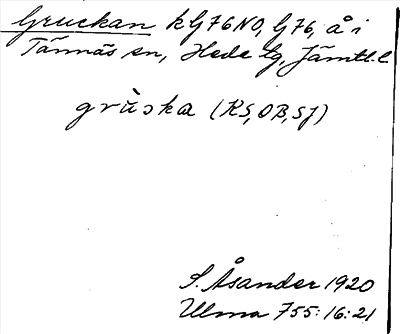 Gruckan kG76NO, G76, å i
Tännäs sn, Hede tg, Jämtl. l
grùska (KS, OB, SJ)
S. Åsander 1920
Ulma 755:16:21